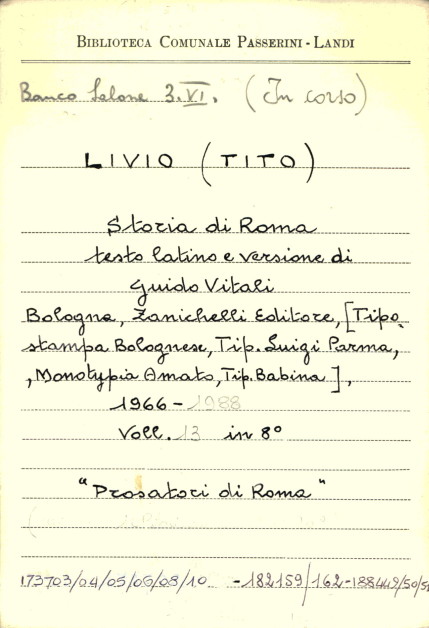 BIBLIOTECA COMUNALE PASSERINI-LANDI
Banco Salone 3.VI. (In corso)
LIVIO (TITO)
Storia di Roma
testo latino e versione di
Guido Vitali
Bologna, Zanichelli Editore, [Tipo
stampa Bolognese, Tip. Luigi Parma,
, Monotypia Amato, Tip. Babina],
1966-1988
Voll. 13 in 8°
"Prosatori di Roma"
173703/04/05/06/08/10 -182159/162-188449/50/51